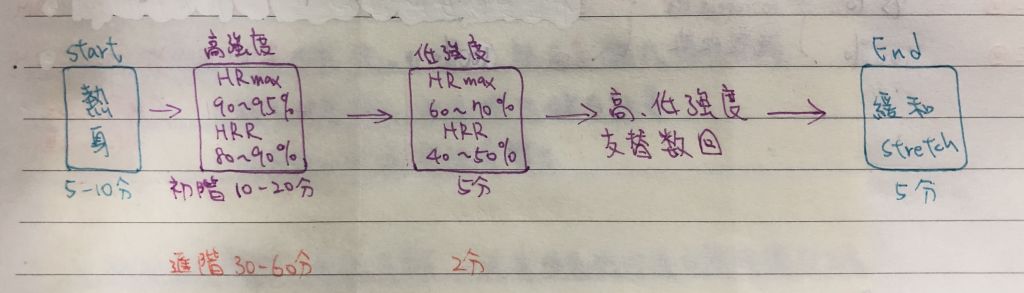 start
熱
身
5-10分
高強度
HRmax
90~95%
HRR
80~90%
初階 10-20分
低強度
HRmax
60~70%
HRR
40~50%
5分
高、低強度
交替数回
End
緩和
stretch
5分
進階 30-60分
2分